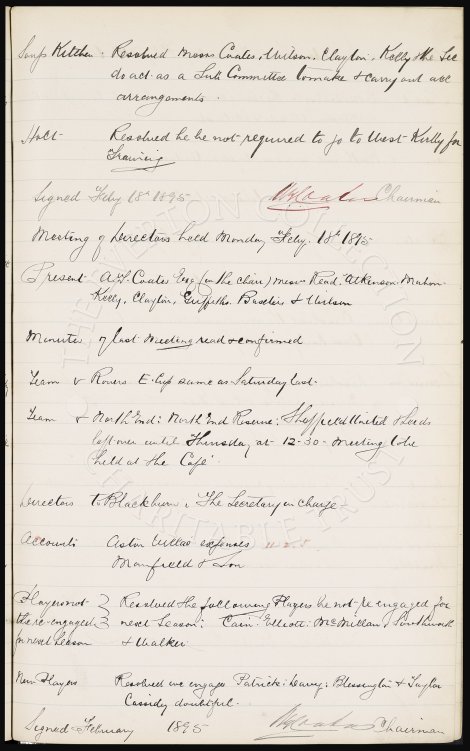 Soup Kitchen: Resolved Messrs Coates, Wilson, Clayton, Kelly & the Sec
do act as a Sub Committee to make & carry out all
arrangements.
Holt Resolved he be not required to go to West Kirby for
Training
Signed Feby 18th 1895 Chairman
Meeting of Directors held Monday Feby. 18th 1895
Present A.T. Coates Esq (in the chair) Messrs Read. Atkinson. Mahon
Kelly, Clayton, Griffiths. Baxter & Wilson
Minutes of last Meeting read & confirmed
Team v Rovers E. Cup same as Saturday last.
Team v North End: North End Reserve: Sheffield United & Leeds
left over until Thursday at 12-30 - Meeting to be
held at the Café
Directors to Blackburn, The Secretary in charge
Accounts Aston Villas expenses
Manfield & Son
Players not
to be re-engaged
for next Season
Resolved the following Players be not re engaged for
next Season: Cain: Elliott: McMillan, Southworth
& Walker
New Players Resolved we engage Patrick: Leavy: Blessington & Taylor
Cassidy doubtful.
Signed February 1895 Chairman
THE EVERTON COLLECTION
CHARITABLE TRUST